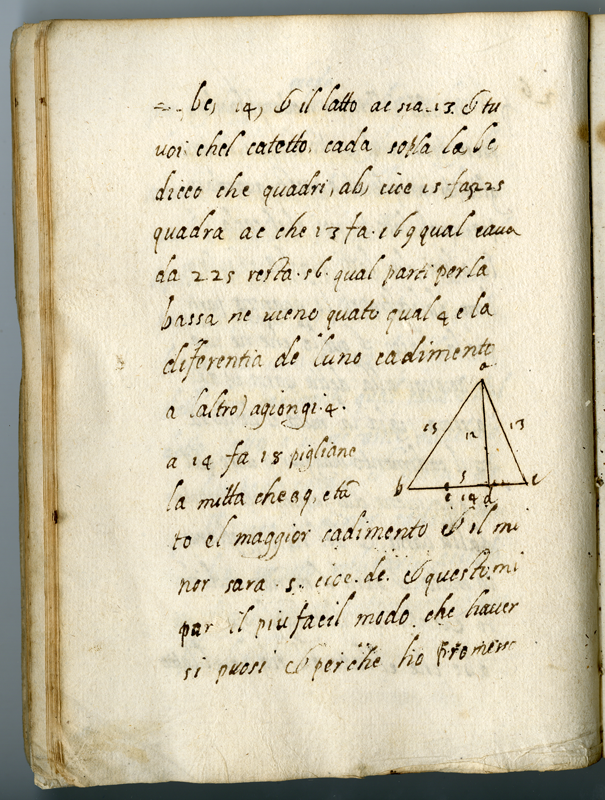 bc, 14, & il latto ac sia .13. & tu
voi chel catetto cada sopra la bc,
dicco che quadri, ab, cioe 15 fa 225
quadra ac che 13 fa .169 qual cava
da 225 resta .56. qual parti per la
bassa ne vieno quato qual 4 e la
differentia de luno cadimento
a laltro) agiongi .4.
a 14 fa 18 pigliane
la mitta che e 9, e tā
to el maggior cadimento & il mi
nor sara .5. cioe .de. & questo mi
par il piu facil modo che haver
si puosi & perche ho promesso
a
15
12
13
5
b
e
14
d
c